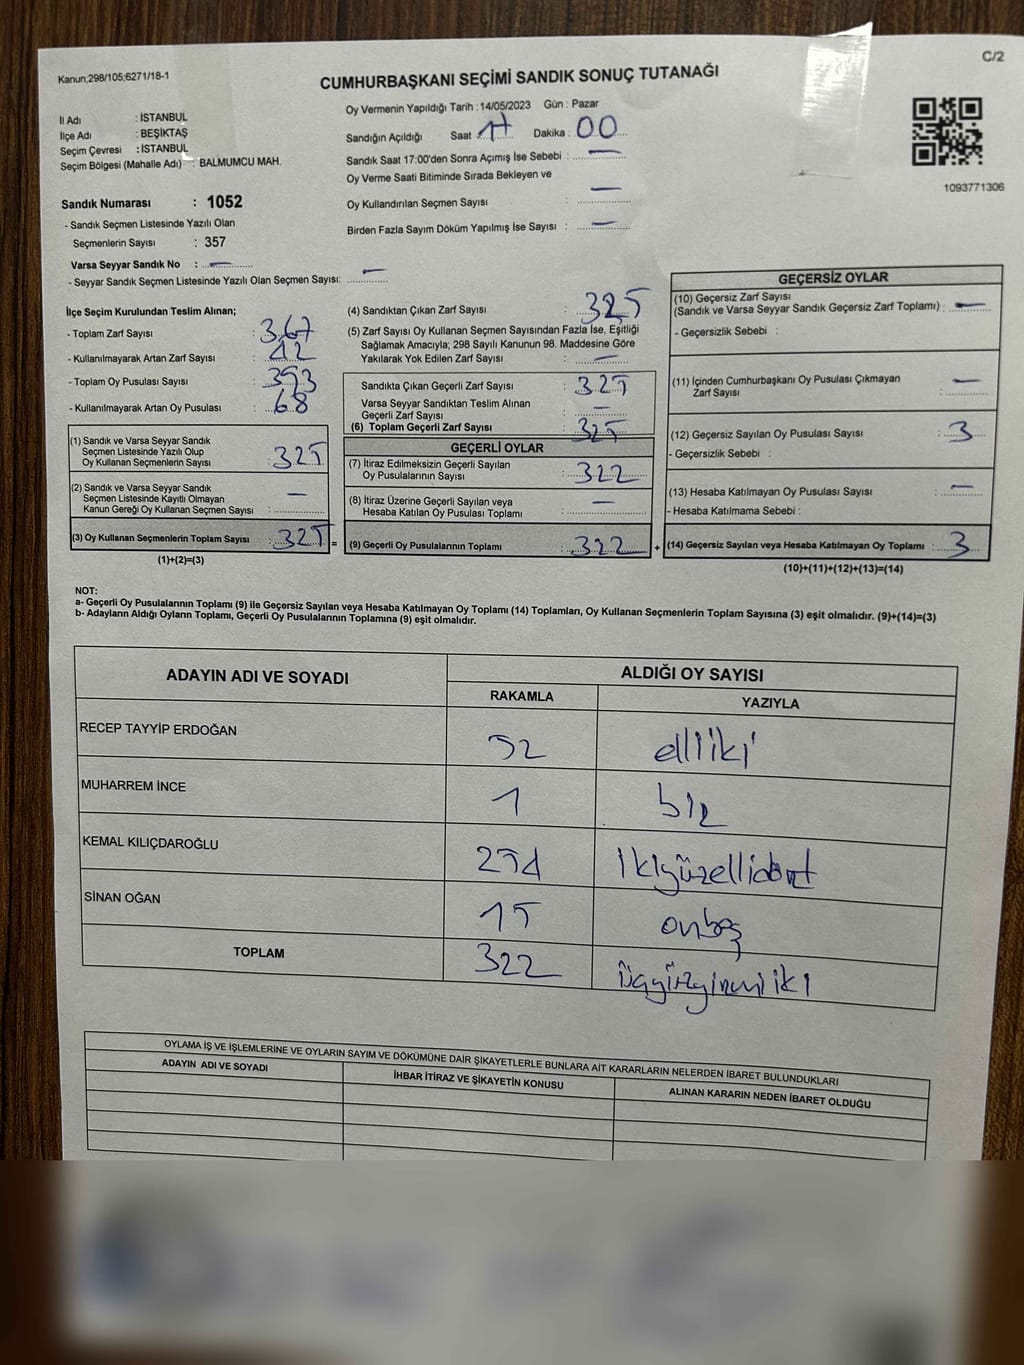 Kanun;298/105;6271/18-1
C/2
CUMHURBAŞKANI SEÇİMİ SANDIK SONUÇ TUTANAĞI
İl Adı : İSTANBUL
İlçe Adı : BEŞİKTAŞ
Seçim Çevresi : İSTANBUL
Seçim Bölgesi (Mahalle Adı) : BALMUMCU MAH.
Oy Vermenin Yapıldığı Tarih : 14/05/2023 Gün : Pazar
Sandığın Açıldığı Saat 17 Dakika : 00
Sandık Saat 17:00'den Sonra Açımış İse Sebebi : —
Oy Verme Saati Bitiminde Sırada Bekleyen ve
Oy Kullandırılan Seçmen Sayısı : —
Birden Fazla Sayım Döküm Yapılmış İse Sayısı : —
1093771306
Sandık Numarası : 1052
- Sandık Seçmen Listesinde Yazılı Olan
Seçmenlerin Sayısı : 357
Varsa Seyyar Sandık No : —
- Seyyar Sandık Seçmen Listesinde Yazılı Olan Seçmen Sayısı: —
İlçe Seçim Kurulundan Teslim Alınan;
- Toplam Zarf Sayısı : 367
- Kullanılmayarak Artan Zarf Sayısı : 42
- Toplam Oy Pusulası Sayısı : 393
- Kullanılmayarak Artan Oy Pusulası : 68
(1) Sandık ve Varsa Seyyar Sandık
Seçmen Listesinde Yazılı Olup
Oy Kullanan Seçmenlerin Sayısı : 325
(2) Sandık ve Varsa Seyyar Sandık
Seçmen Listesinde Kayıtlı Olmayan
Kanun Gereği Oy Kullanan Seçmen Sayısı : —
(3) Oy Kullanan Seçmenlerin Toplam Sayısı : 325 =
(1)+(2)=(3)
(4) Sandıktan Çıkan Zarf Sayısı : 325
(5) Zarf Sayısı Oy Kullanan Seçmen Sayısından Fazla İse, Eşitliği
Sağlamak Amacıyla; 298 Sayılı Kanunun 98. Maddesine Göre
Yakılarak Yok Edilen Zarf Sayısı : —
Sandıkta Çıkan Geçerli Zarf Sayısı : 325
Varsa Seyyar Sandıktan Teslim Alınan
Geçerli Zarf Sayısı : —
(6) Toplam Geçerli Zarf Sayısı : 325
GEÇERLİ OYLAR
(7) İtiraz Edilmeksizin Geçerli Sayılan
Oy Pusulalarının Sayısı : 322
(8) İtiraz Üzerine Geçerli Sayılan veya
Hesaba Katılan Oy Pusulası Toplamı : —
(9) Geçerli Oy Pusulalarının Toplamı : 322 +
GEÇERSİZ OYLAR
(10) Geçersiz Zarf Sayısı
(Sandık ve Varsa Seyyar Sandık Geçersiz Zarf Toplamı) : —
- Geçersizlik Sebebi :
(11) İçinden Cumhurbaşkanı Oy Pusulası Çıkmayan
Zarf Sayısı : —
(12) Geçersiz Sayılan Oy Pusulası Sayısı : 3
- Geçersizlik Sebebi :
(13) Hesaba Katılmayan Oy Pusulası Sayısı : —
- Hesaba Katılmama Sebebi :
(14) Geçersiz Sayılan veya Hesaba Katılmayan Oy Toplamı : 3
(10)+(11)+(12)+(13)=(14)
NOT:
a- Geçerli Oy Pusulalarının Toplamı (9) ile Geçersiz Sayılan veya Hesaba Katılmayan Oy Toplamı (14) Toplamları, Oy Kullanan Seçmenlerin Toplam Sayısına (3) eşit olmalıdır. (9)+(14)=(3)
b- Adayların Aldığı Oyların Toplamı, Geçerli Oy Pusulalarının Toplamına (9) eşit olmalıdır.
ADAYIN ADI VE SOYADI
ALDIĞI OY SAYISI
RAKAMLA YAZIYLA
RECEP TAYYİP ERDOĞAN 52 elliiki
MUHARREM İNCE 1 bir
KEMAL KILIÇDAROĞLU 254 ikiyüzellidört
SİNAN OĞAN 15 onbeş
TOPLAM 322 üçyüzyirmiiki
OYLAMA İŞ VE İŞLEMLERİNE VE OYLARIN SAYIM VE DÖKÜMÜNE DAİR ŞİKAYETLERLE BUNLARA AİT KARARLARIN NELERDEN İBARET BULUNDUKLARI
ADAYIN ADI VE SOYADI
İHBAR İTİRAZ VE ŞİKAYETİN KONUSU
ALINAN KARARIN NEDEN İBARET OLDUĞU